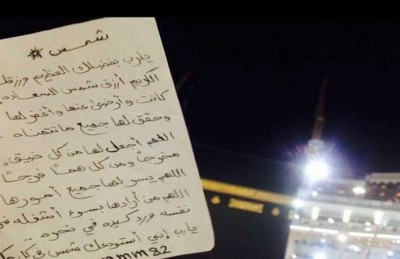 شمس
يارب بفضلك العظيم ورزقك
الكريم أرزق شمس السعاده
كانت وأرضى عنها وأغفر لها
وحقق لها جميع ماتتمناه
اللهم أجعل لها من كل ضيق
مخرجاً ومن كل هماً فرجاً
اللهم يسر لها جميع أمورها
اللهم من أرادها بسوء أشغله في
نفسه ورد كيده في نحره
يارب إني أستودعك شمس في كل
mm82